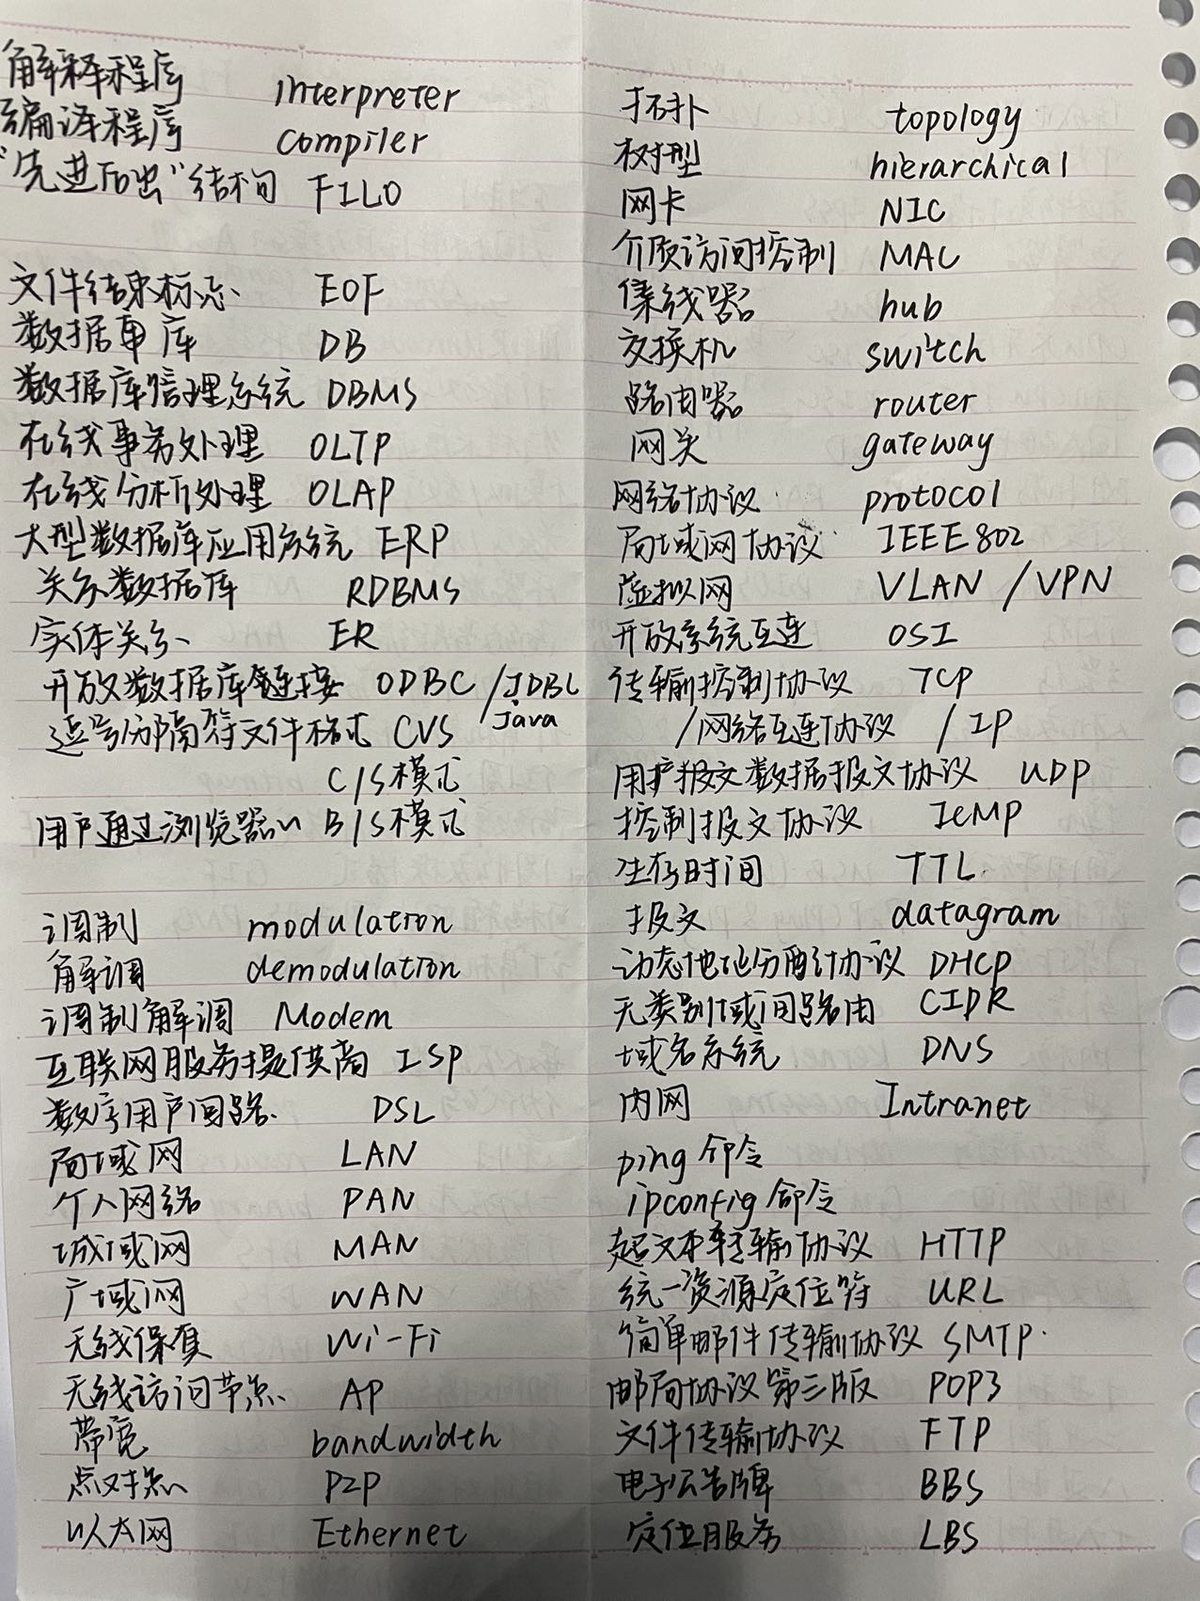 解释程序 interpreter
编译程序 compiler
"先进后出"结构 FILO
文件结束标志 EOF
数据库 DB
数据库管理系统 DBMS
在线事务处理 OLTP
在线分析处理 OLAP
大型数据库应用系统 ERP
关系数据库 RDBMS
实体关系 ER
开放数据库链接 ODBC / JDBC
Java
逗号分隔符文件格式 CVS
C/S模式
用户通过浏览器 B/S模式
调制 modulation
解调 demodulation
调制解调 Modem
互联网服务提供商 ISP
数字用户回路 DSL
局域网 LAN
个人网络 PAN
城域网 MAN
广域网 WAN
无线保真 Wi-Fi
无线访问节点 AP
带宽 bandwidth
点对点 P2P
以太网 Ethernet
拓扑 topology
树型 hierarchical
网卡 NIC
介质访问控制 MAC
集线器 hub
交换机 switch
路由器 router
网关 gateway
网络协议 protocol
局域网协议 IEEE802
虚拟网 VLAN / VPN
开放系统互连 OSI
传输控制协议 TCP
/网络互连协议 / IP
用户报文数据报文协议 UDP
控制报文协议 ICMP
生存时间 TTL
报文 datagram
动态地址分配协议 DHCP
无类别域间路由 CIDR
域名系统 DNS
内网 Intranet
ping 命令
ipconfig 命令
超文本转输协议 HTTP
统一资源定位符 URL
简单邮件传输协议 SMTP
邮局协议第三版 POP3
文件传输协议 FTP
电子公告牌 BBS
定位服务 LBS